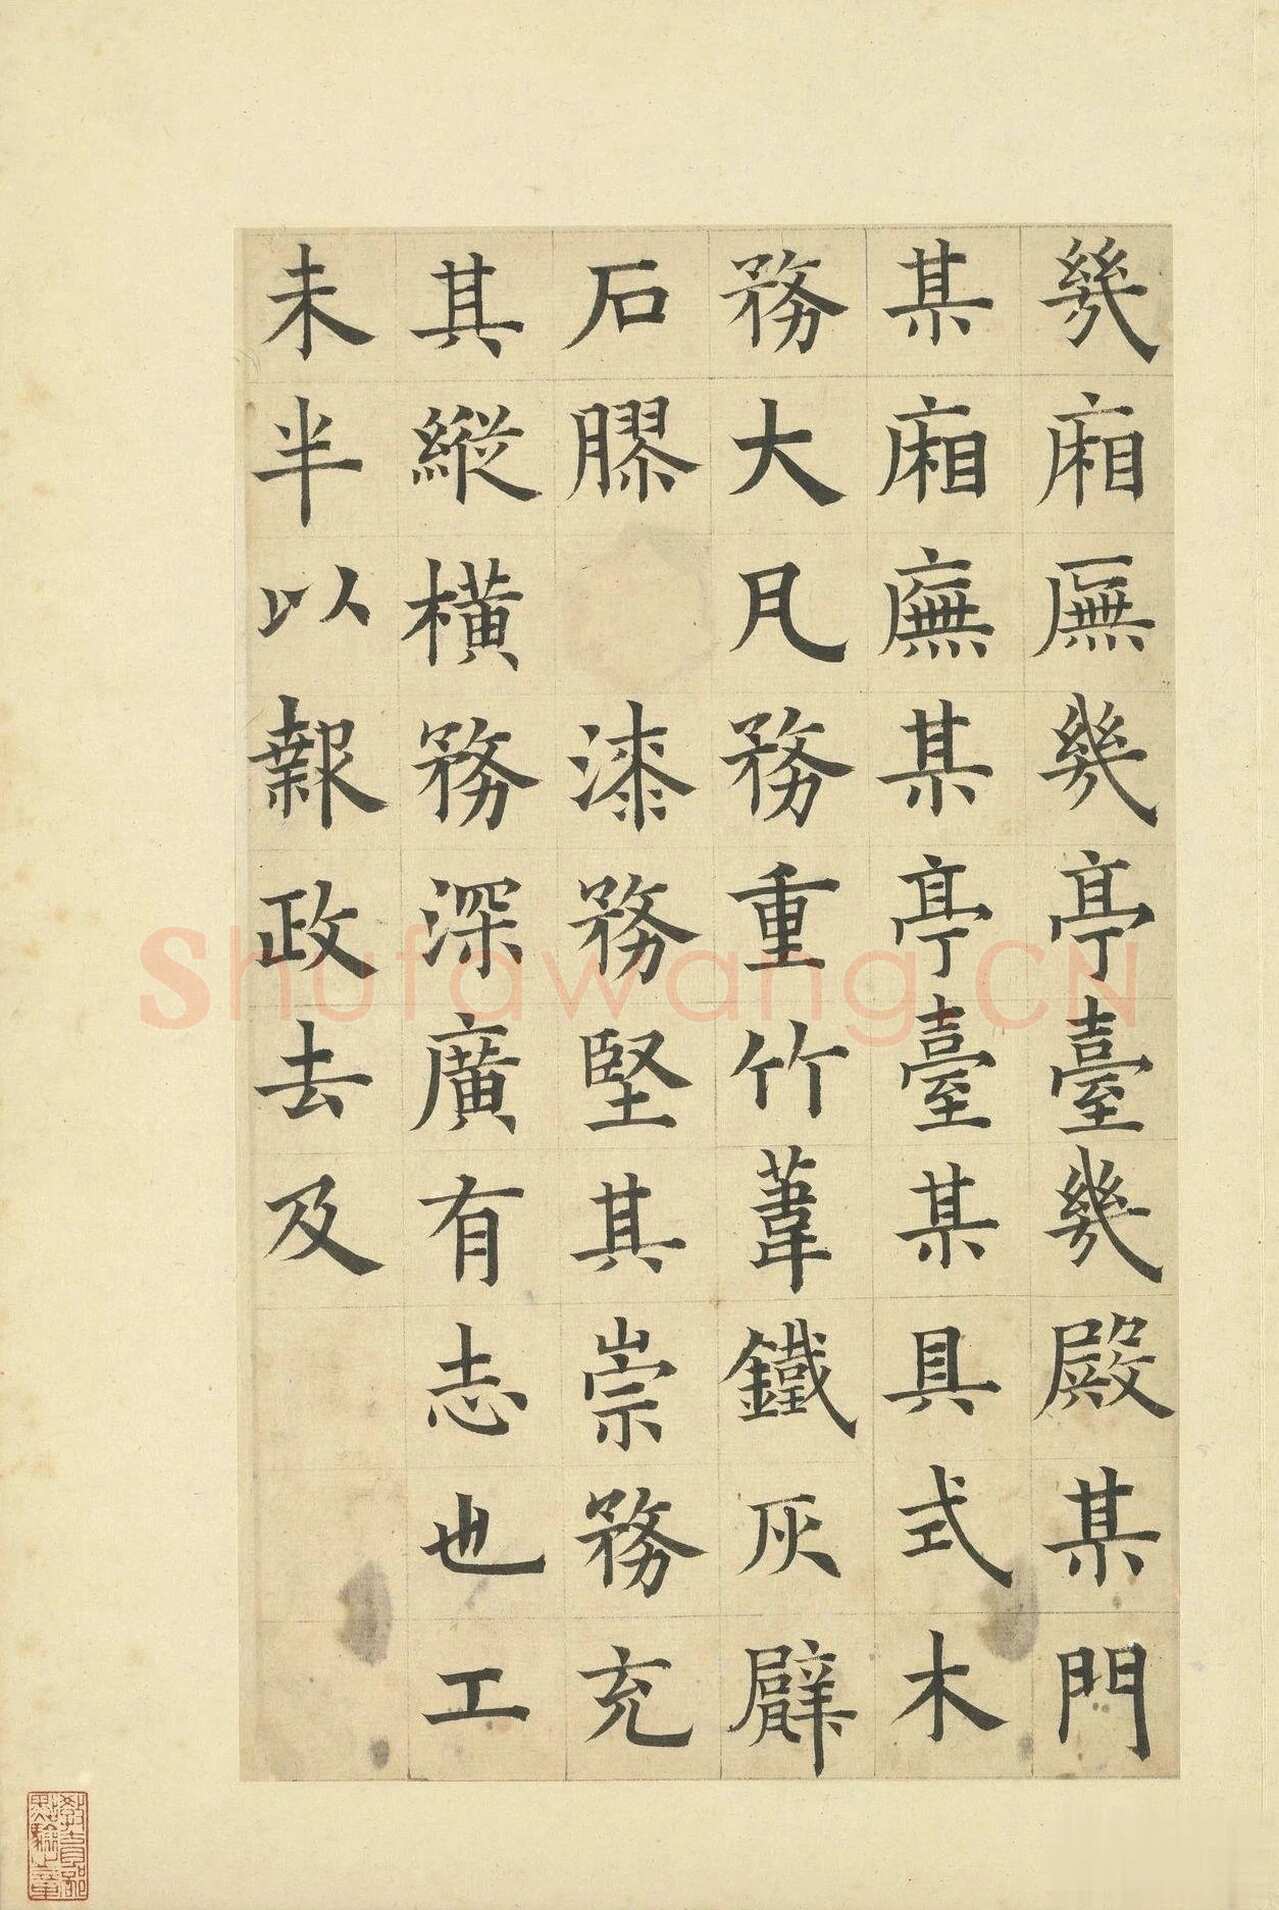 幾廂廡幾亭臺幾殿某門
某廂廡某亭臺某具式木
務大凡務重竹葦鐵灰甓
石膠漆務堅其崇務充
其縱橫務深廣有志也工
未半以報政去及
Shufawang.CN
教育部點驗之章